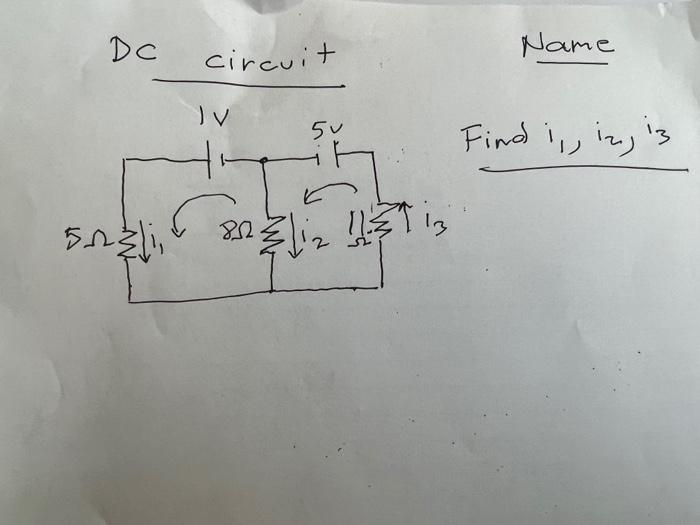 DC circuit
Name
Find i1, i2, i3
1V
5V
5Ω
i1
8Ω
i2
11Ω
i3